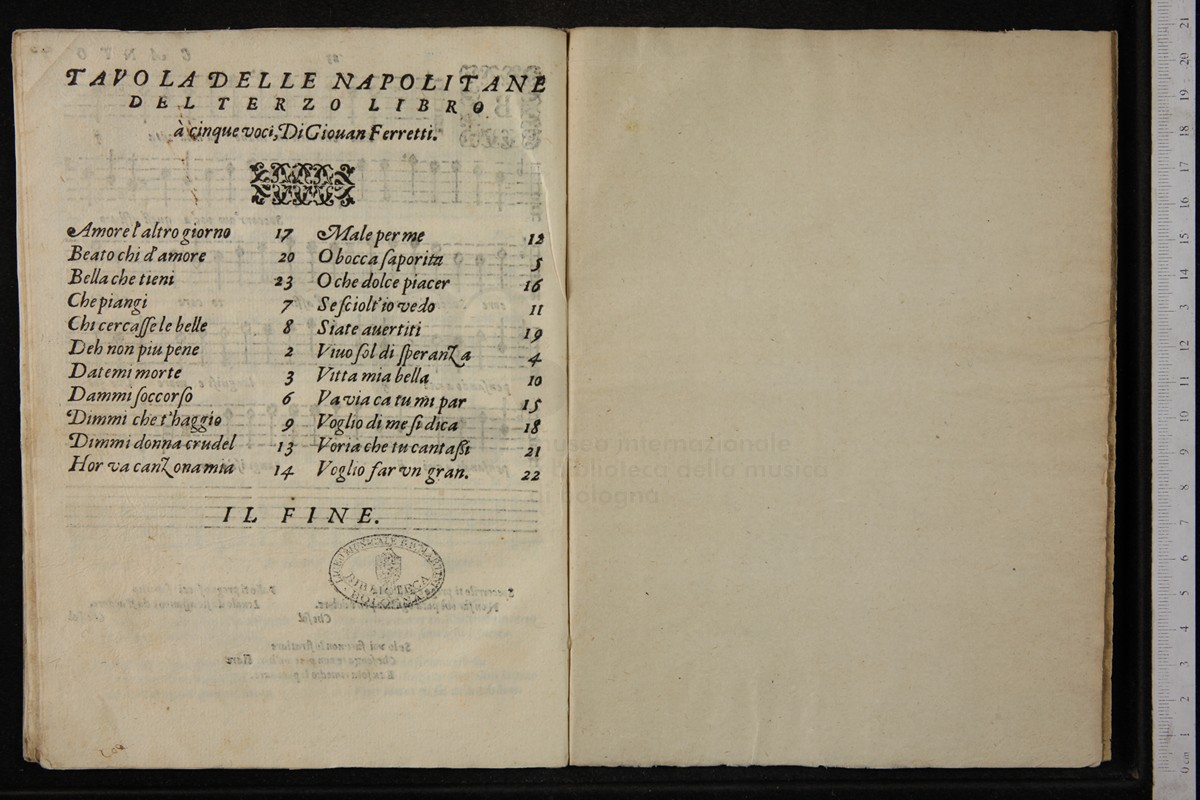 TAVOLA DELLE NAPOLITANE
DEL TERZO LIBRO
à cinque voci, Di Giouan Ferretti.
Amore l'altro giorno 17
Beato chi d'amore 20
Bella che tieni 23
Che piangi 7
Chi cercaſſe le belle 8
Deh non piu pene 2
Datemi morte 3
Dammi ſoccorſo 6
Dimmi che t'haggio 9
Dimmi donna crudel 13
Hor va canzona mia 14
Male per me 12
O bocca ſaporita 5
O che dolce piacer 16
Se ſciolt'io vedo 11
Siate auertiti 19
Viuo ſol di ſperanza 4
Vitta mia bella 10
Va via ca tu mi par 15
Voglio di me ſi dica 18
Voria che tu cantaſti 21
Voglio far vn gran. 22
IL FINE.
LICEO MUSICALE
BIBLIOTECA
BOLOGNA
museo internazionale
biblioteca della musica
di bologna
0 cm 1 2 3 4 5 6 7 8 9 10 11 12 13 14 15 16 17 18 19 20 21